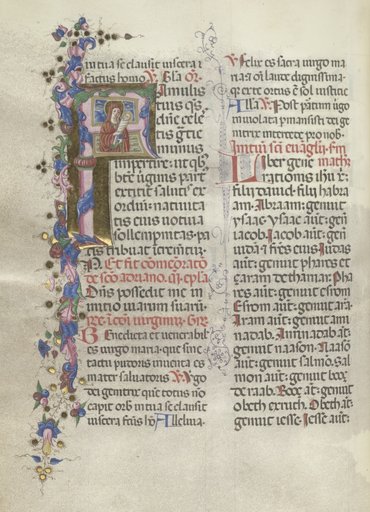 in tua se clausit viscera
factus homo. V. Gl̄a or̄
Famulis
tuis qs̄.
dn̄e cele
stis gr̄e
munus
impertire: ut qb͛
beate uirginis part
extitit salutis ex
ordiū: natiuita
tis eius uotiua
sollempnitas. pa
cis tribuat īcremētū.
Et fit com̄eōrato
de sc̄o adriano.
Dn̄s possedit me in
initio uiarum suarū
Benedicta et uenerabil
es uirgo maria. que sine
tactu pudoris inuenta es
mater saluatoris. V. Vgo
dei genitrix que totus nō
capit orbis in tua se clausit
uiscera factus hō. Alleluia.
V. Felix es sacra uirgo ma
ria: et oī laude dignissima
qr ex te ortus ē sol iustitie
Alla. V. Post partum ūgo
inuiolata pmansisti dei ge
nitrix intercede pro nob.
Initiū sc̄i euāgelii. sm̄
Liber gene math͛
rationis ihū x̄:
filij dauid: filij habra
am. Abraam: genuit
ysaac. ysaac aūt: gen̄
iacob. Iacob aūt: gen̄
iudā: et fr̄es eius. Iudas
aūt: genuit phares et
zaram de thamar. Pha
res aūt: genuit esrom
Esrom aūt: genuit ara.
Aram aūt: genuit ami
nadab. Aminadab aūt:
genuit naason. Naasō
aūt: genuit salmō. Sal
mon aūt: genuit booz
de raab. Booz aūt: genuit
obeth ex ruth. Obeth aūt:
genuit iesse. Iesse aūt: